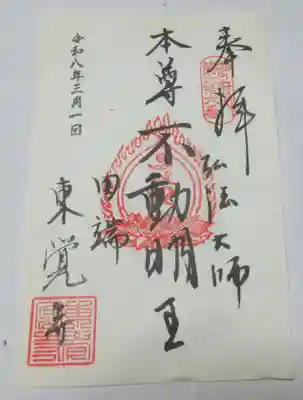 奉拝
弘法大師
本尊不動明王
田端
東覚寺
令和八年三月一日